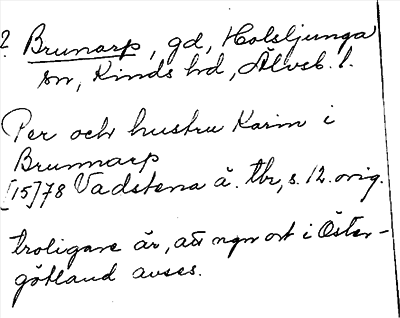 ? Brunarp, gd, Holsljunga
sn, Kinds hd, Älvsb. l.
Per och hustru Karin i
Brunnarp
[15]78 Vadstena ä. tbr, s. 12. orig.
troligare är, att ngn ort i Öster-
götland avses.